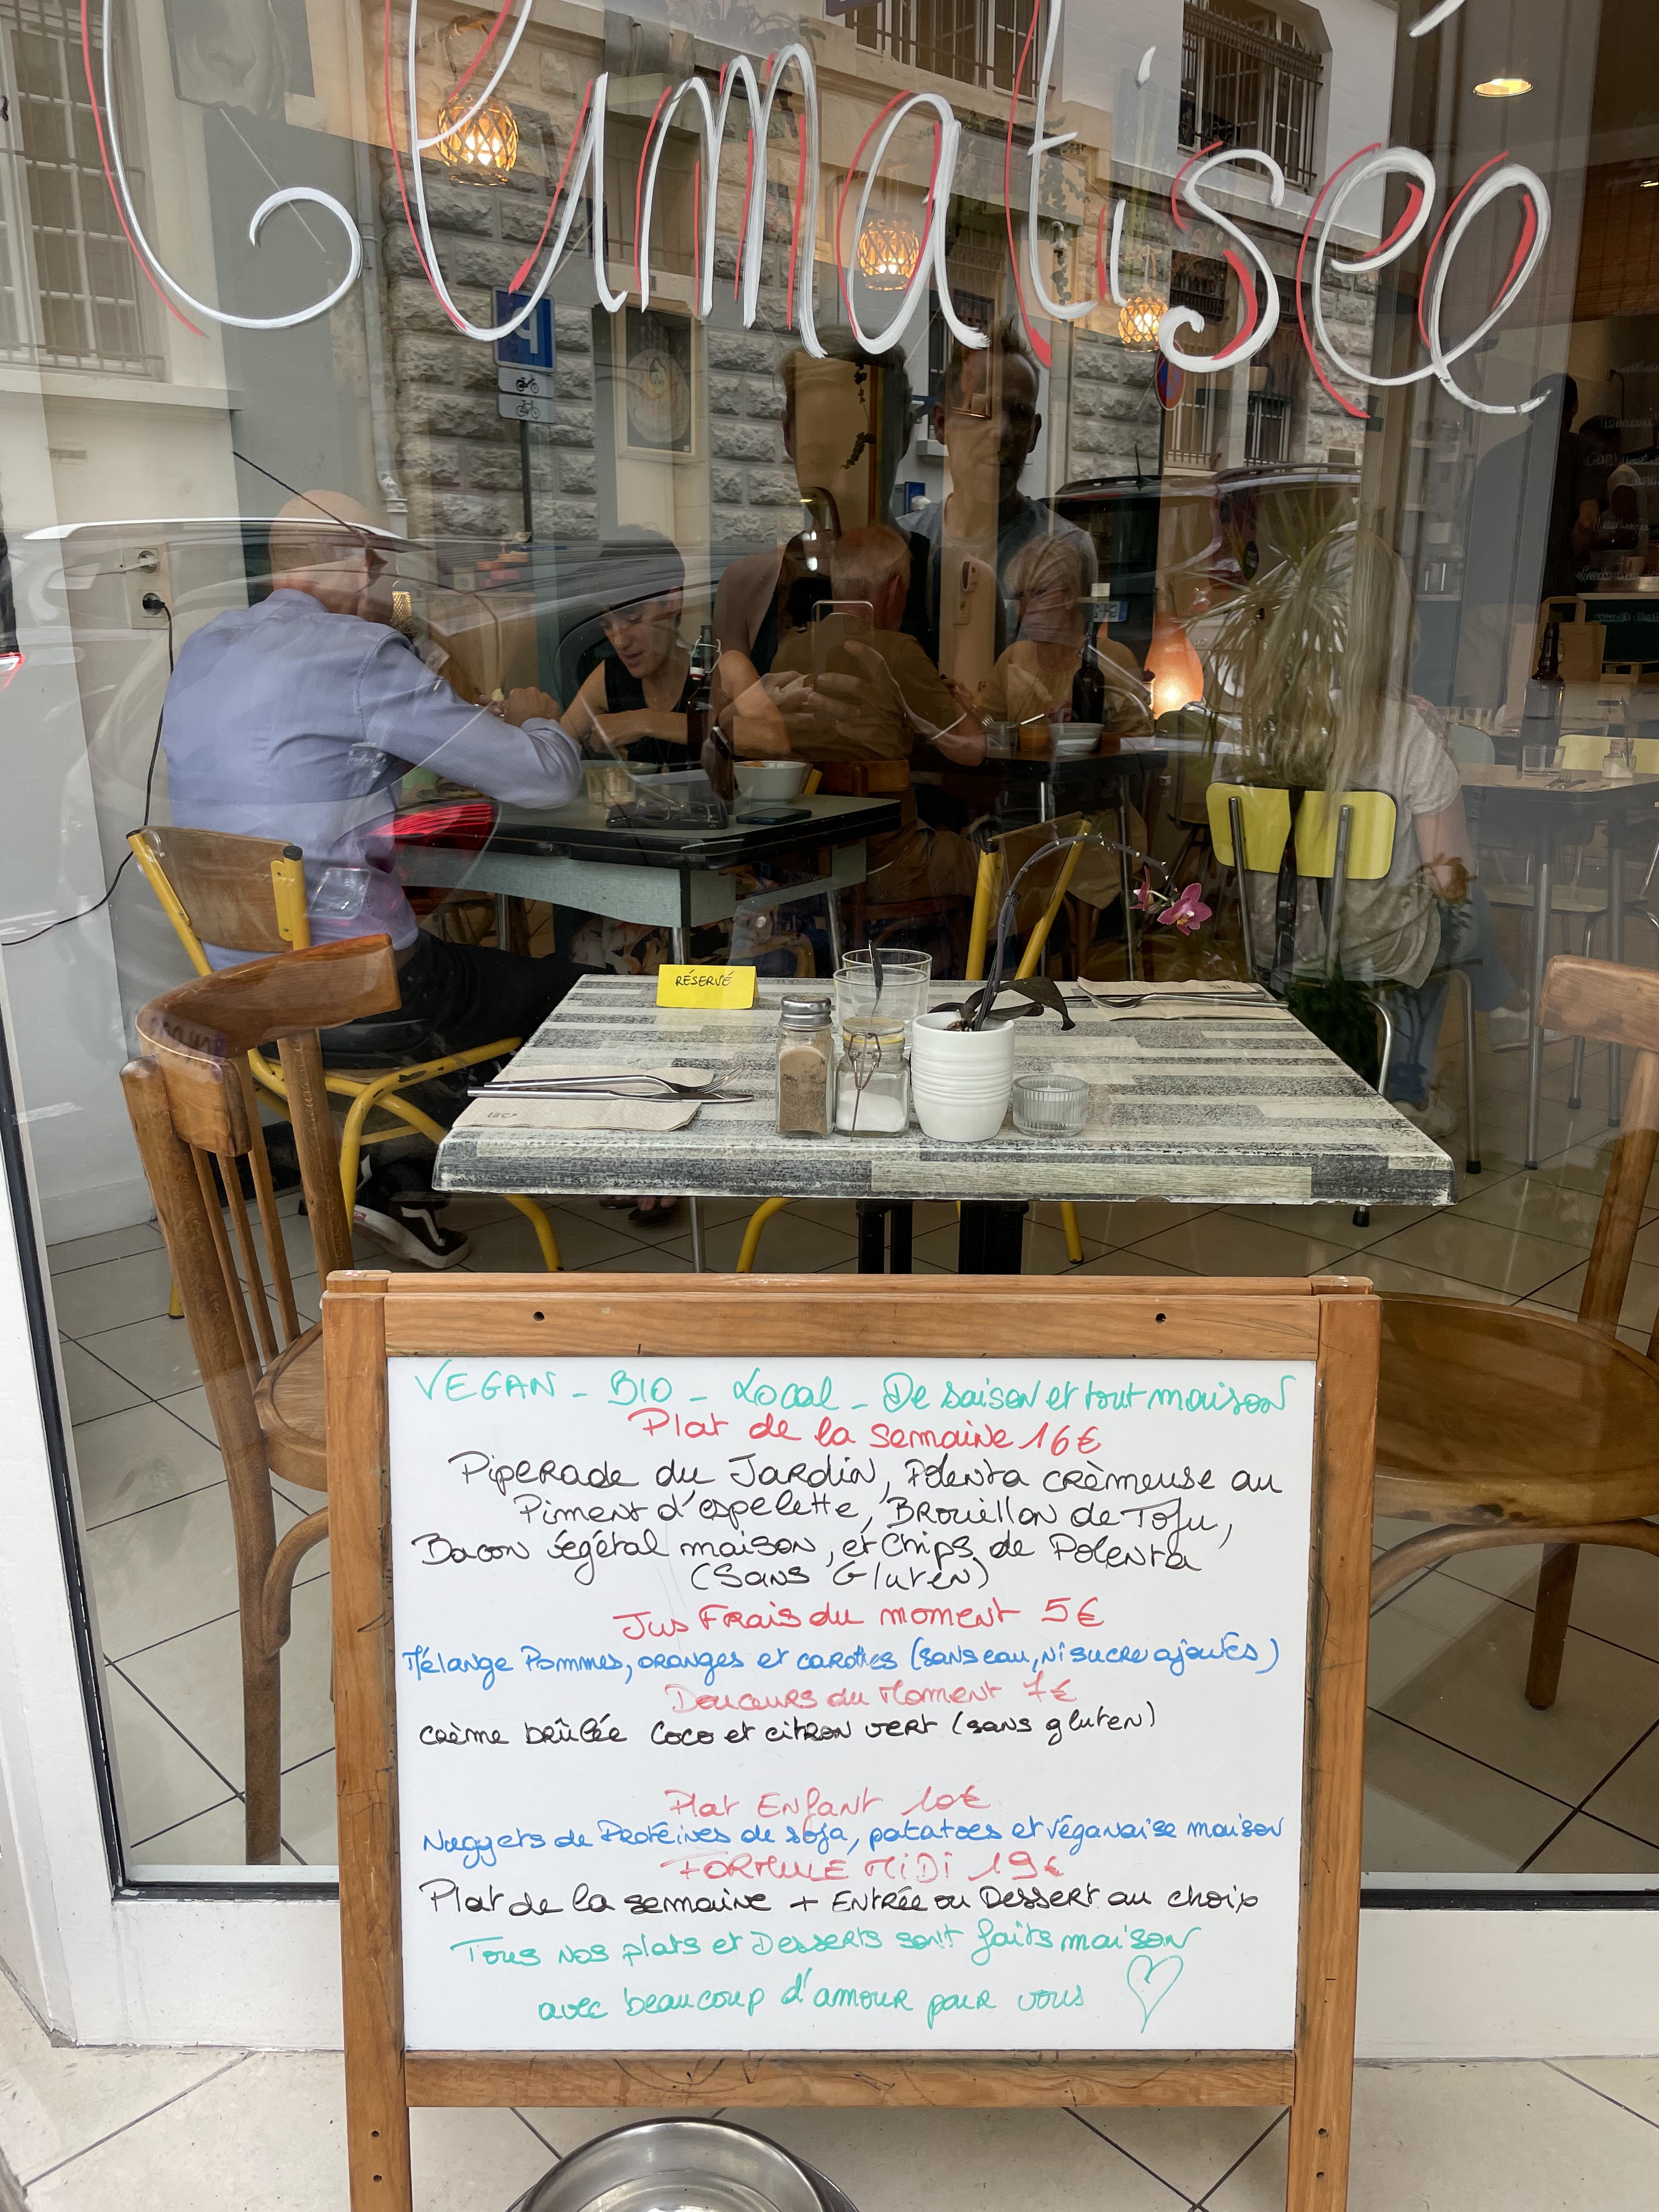 Climatisée
RÉSERVÉ
VEGAN - BIO - Local - De saison et tout maison
Plat de la semaine 16€
Piperade du Jardin, Polenta crèmeuse au
Piment d'espelette, Brouillon de Tofu,
Bacon végétal maison, et Chips de Polenta
(Sans Gluten)
Jus Frais du moment 5€
Mélange Pommes, oranges et carottes (sans eau, ni sucre ajoutés)
Douceurs du Moment 7€
crème brûlée Coco et citron vert (sans gluten)
Plat Enfant 10€
Nuggets de Protéines de soja, patatoes et véganaise maison
FORMULE MiDi 19€
Plat de la semaine + Entrée ou Dessert au choix
Tous nos plats et Desserts sont faits maison
avec beaucoup d'amour pour vous